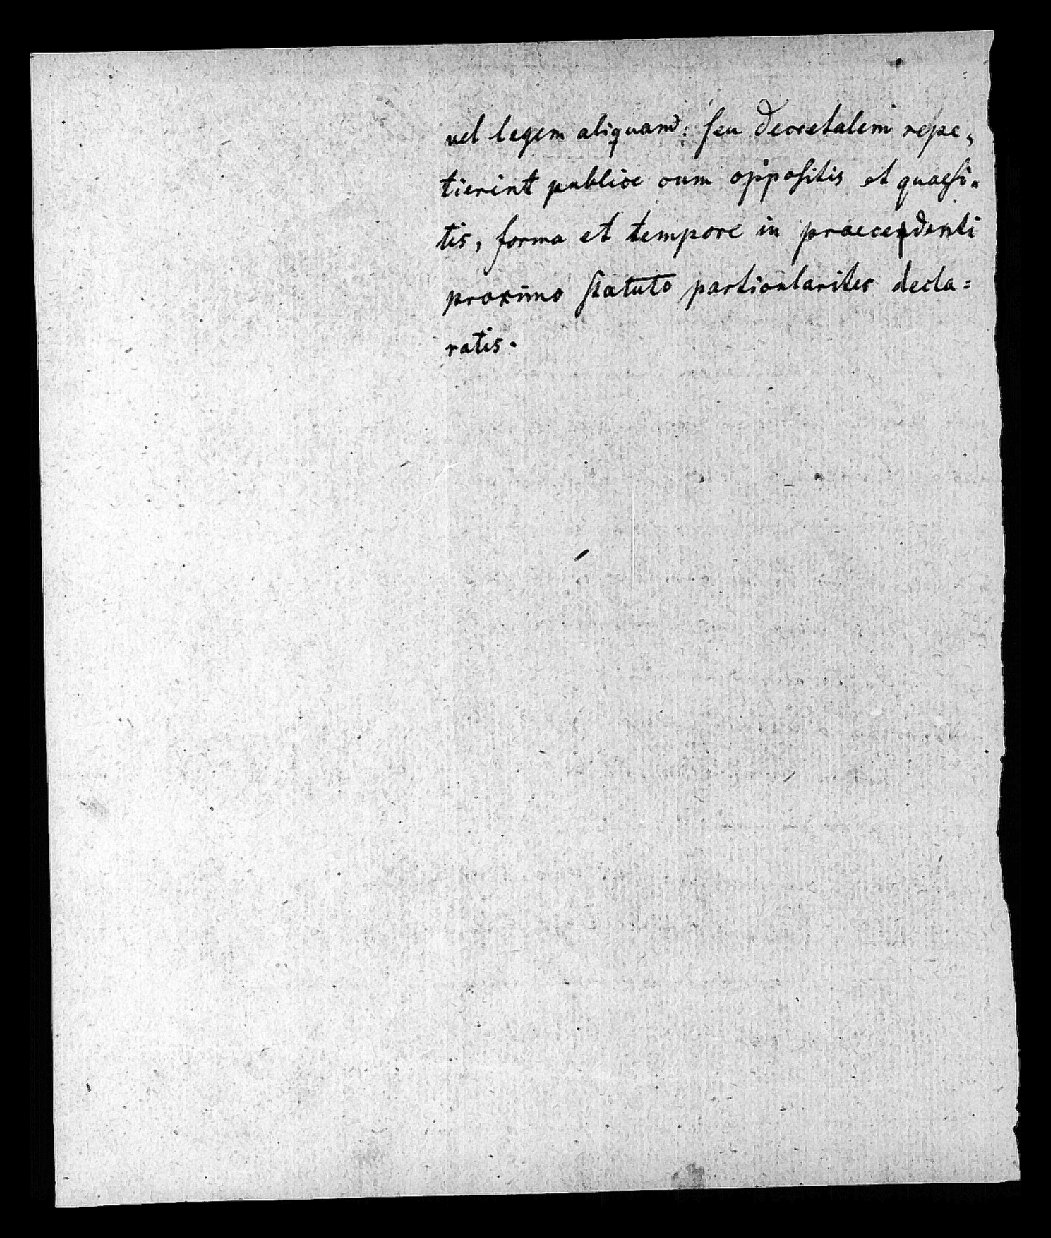 vel legem aliquam: seu decretalem repe-
tierint publice cum oppositis et quaesi-
tis, forma et tempore in praecedenti
proximo statuto particulariter decla=
ratis.